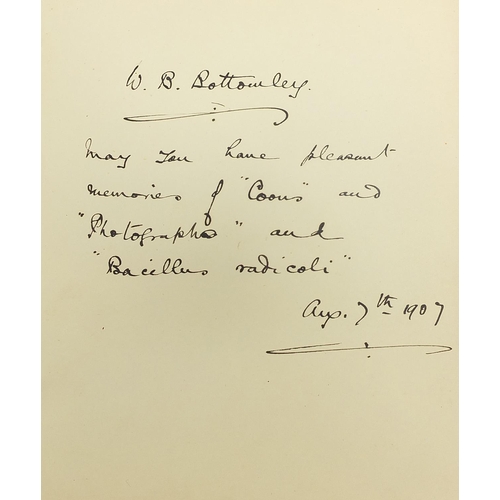 W. B. Bottomley.
May you have pleasant
memories of "Coons" and
"Photographs" and
"Bacillus radicoli"
Aug. 7th 1907